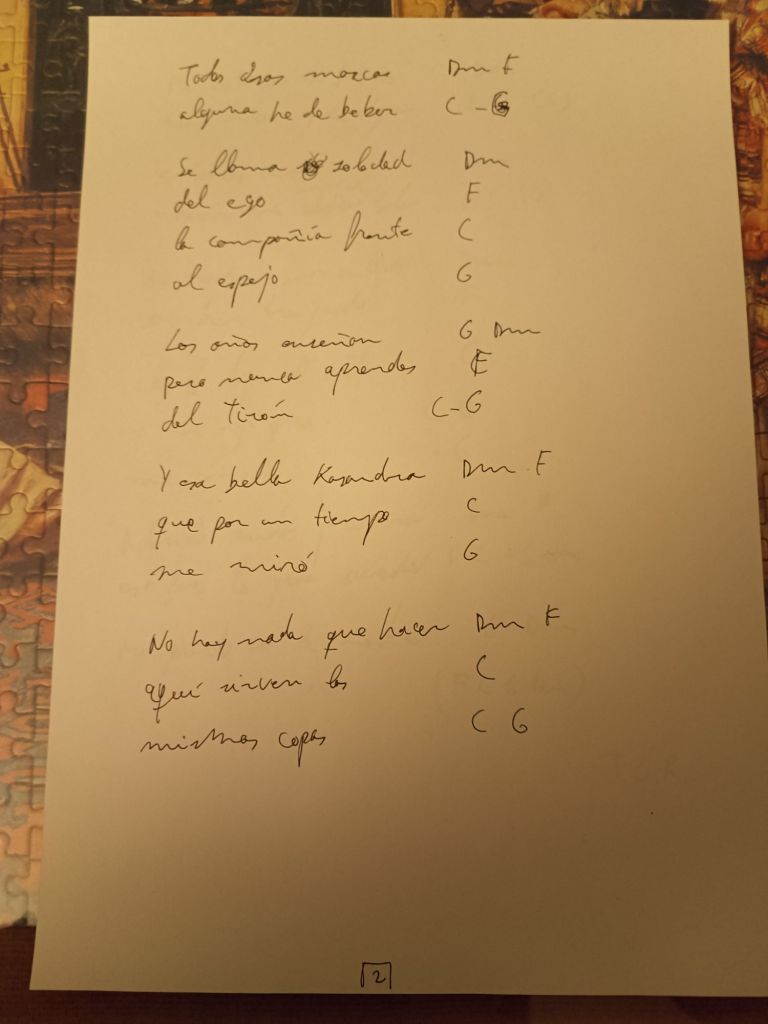 Todas esas marcas Dm F
alguna he de beber C - G
Se llama soledad Dm
del ego F
la compañía frente C
al espejo G
Los años enseñan G Dm
pero nunca aprendes F
del tirón C-G
Y esa bella Kasandra Dm F
que por un tiempo C
me miró G
No hay nada que hacer Dm F
aquí sirven las C
mismas copas C G
2